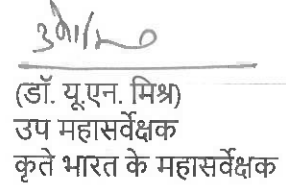 (डॉ. यू.एन. मिश्र)
उप महासर्वेक्षक
कृते भारत के महासर्वेक्षक